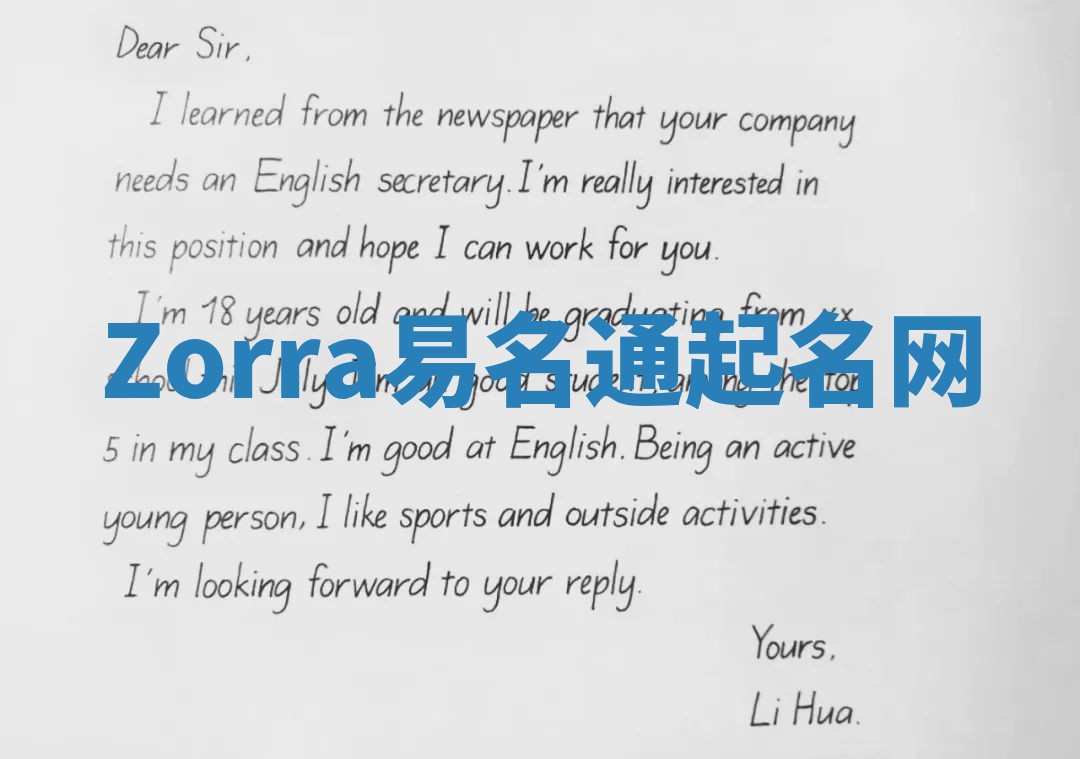 Dear Sir,
I learned from the newspaper that your company
needs an English secretary. I'm really interested in
this position and hope I can work for you.
I'm 18 years old and will be graduating from xx
Zorra易名通起名网
school this July. I'm a good student, among the top
5 in my class. I'm good at English. Being an active
young person, I like sports and outside activities.
I'm looking forward to your reply.
Yours,
Li Hua.